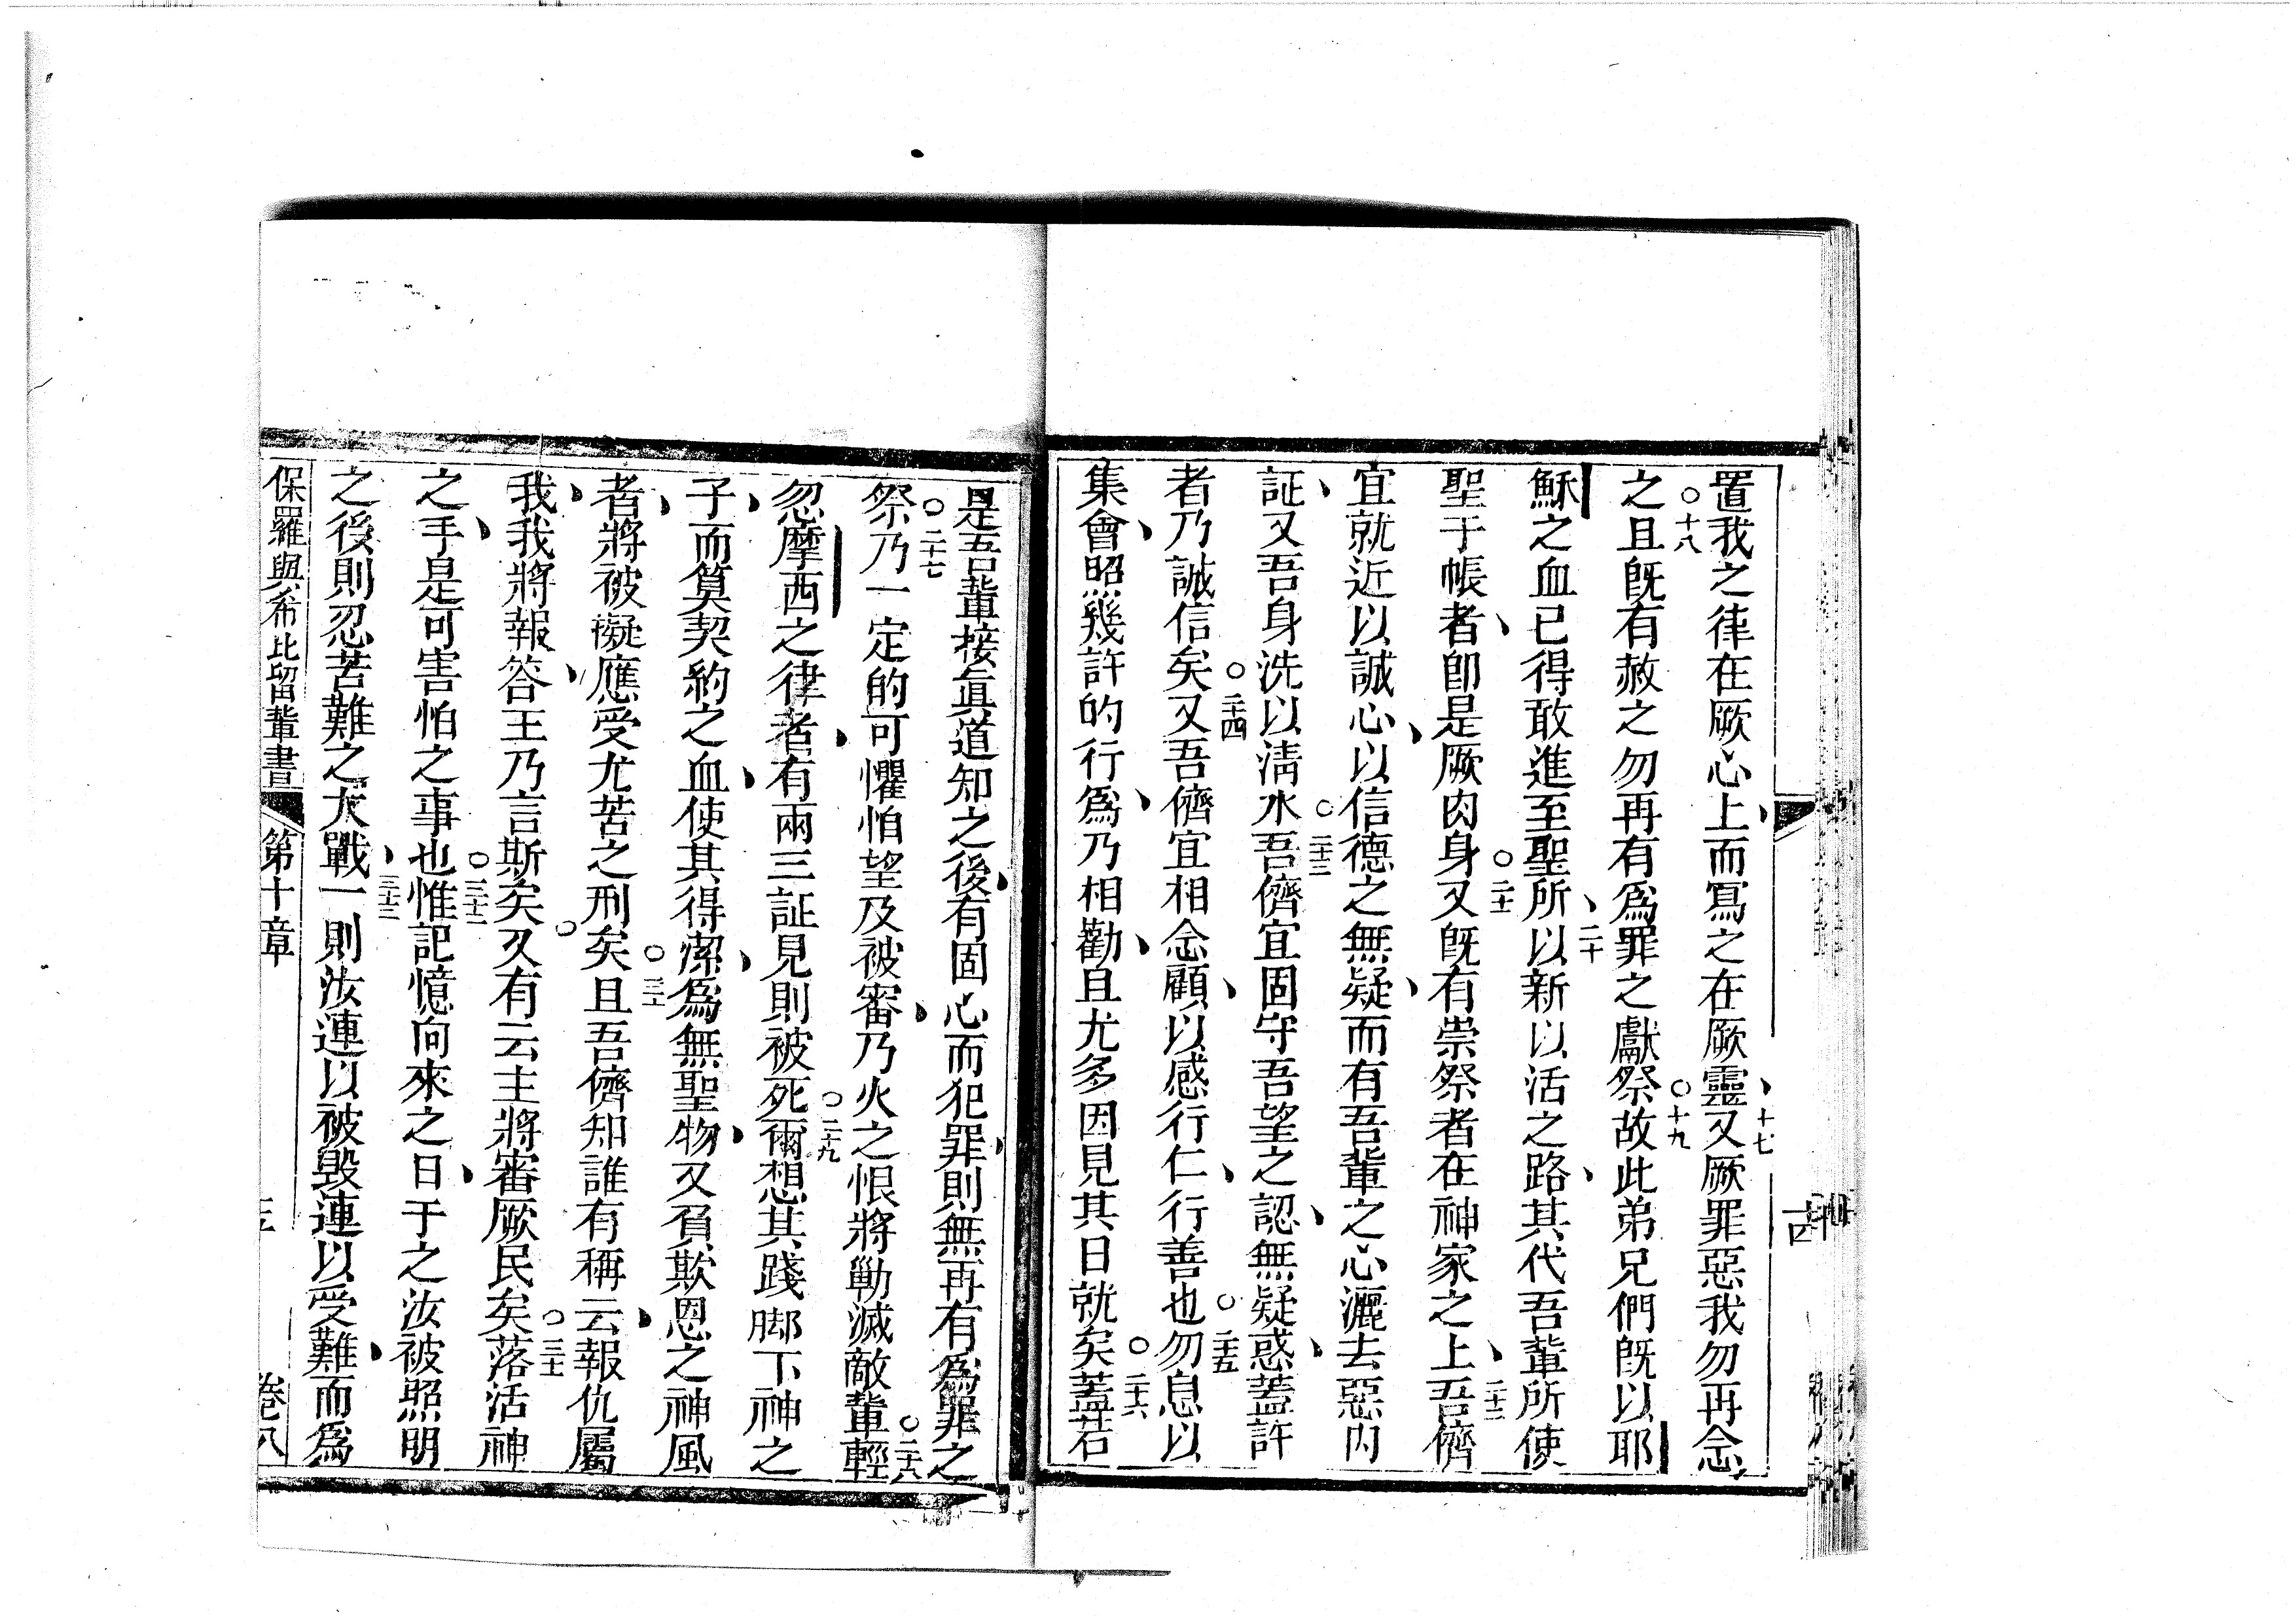 置我之律在厥心上而寫之在厥靈又厥罪惡我勿再念
之且旣有赦之勿再有爲罪之獻祭故此弟兄們旣以耶
穌之血已得敢進至聖所以新以活之路其代吾輩所使
聖于帳者卽是厥肉身又旣有崇祭者在神家之上吾儕
宜就近以誠心以信德之無疑而有吾輩之心灑去惡內
証又吾身洗以淸水吾儕宜固守吾望之認無疑惑蓋許
者乃誠信矣又吾儕宜相念顧以感行仁行善也勿息以
集會照幾許的行爲乃相勸且尤多因見其日就矣蓋若
十七
十八
十九
二十
二十一
二十二
二十三
二十四
二十五
二十六
是吾輩接眞道知之後有固心而犯罪則無再有爲罪之
祭乃一定的可懼怕望及被審乃火之恨將勦滅敵輩輕
忽摩西之律者有兩三証見則被死爾想其踐脚下神之
子而算契約之血使其得潔爲無聖物又負欺恩之神風
者將被擬應受尤苦之刑矣且吾儕知誰有稱云報仇屬
我我將報答王乃言斯矣又有云主將審厥民矣落活神
之手是可害怕之事也惟記憶向來之日于之汝被照明
之後則忍苦難之大戰一則汝連以被毀連以受難而爲
二十七
二十八
二十九
三十
三十一
三十二
三十三
保羅與希比留輩書 第十章 卷八